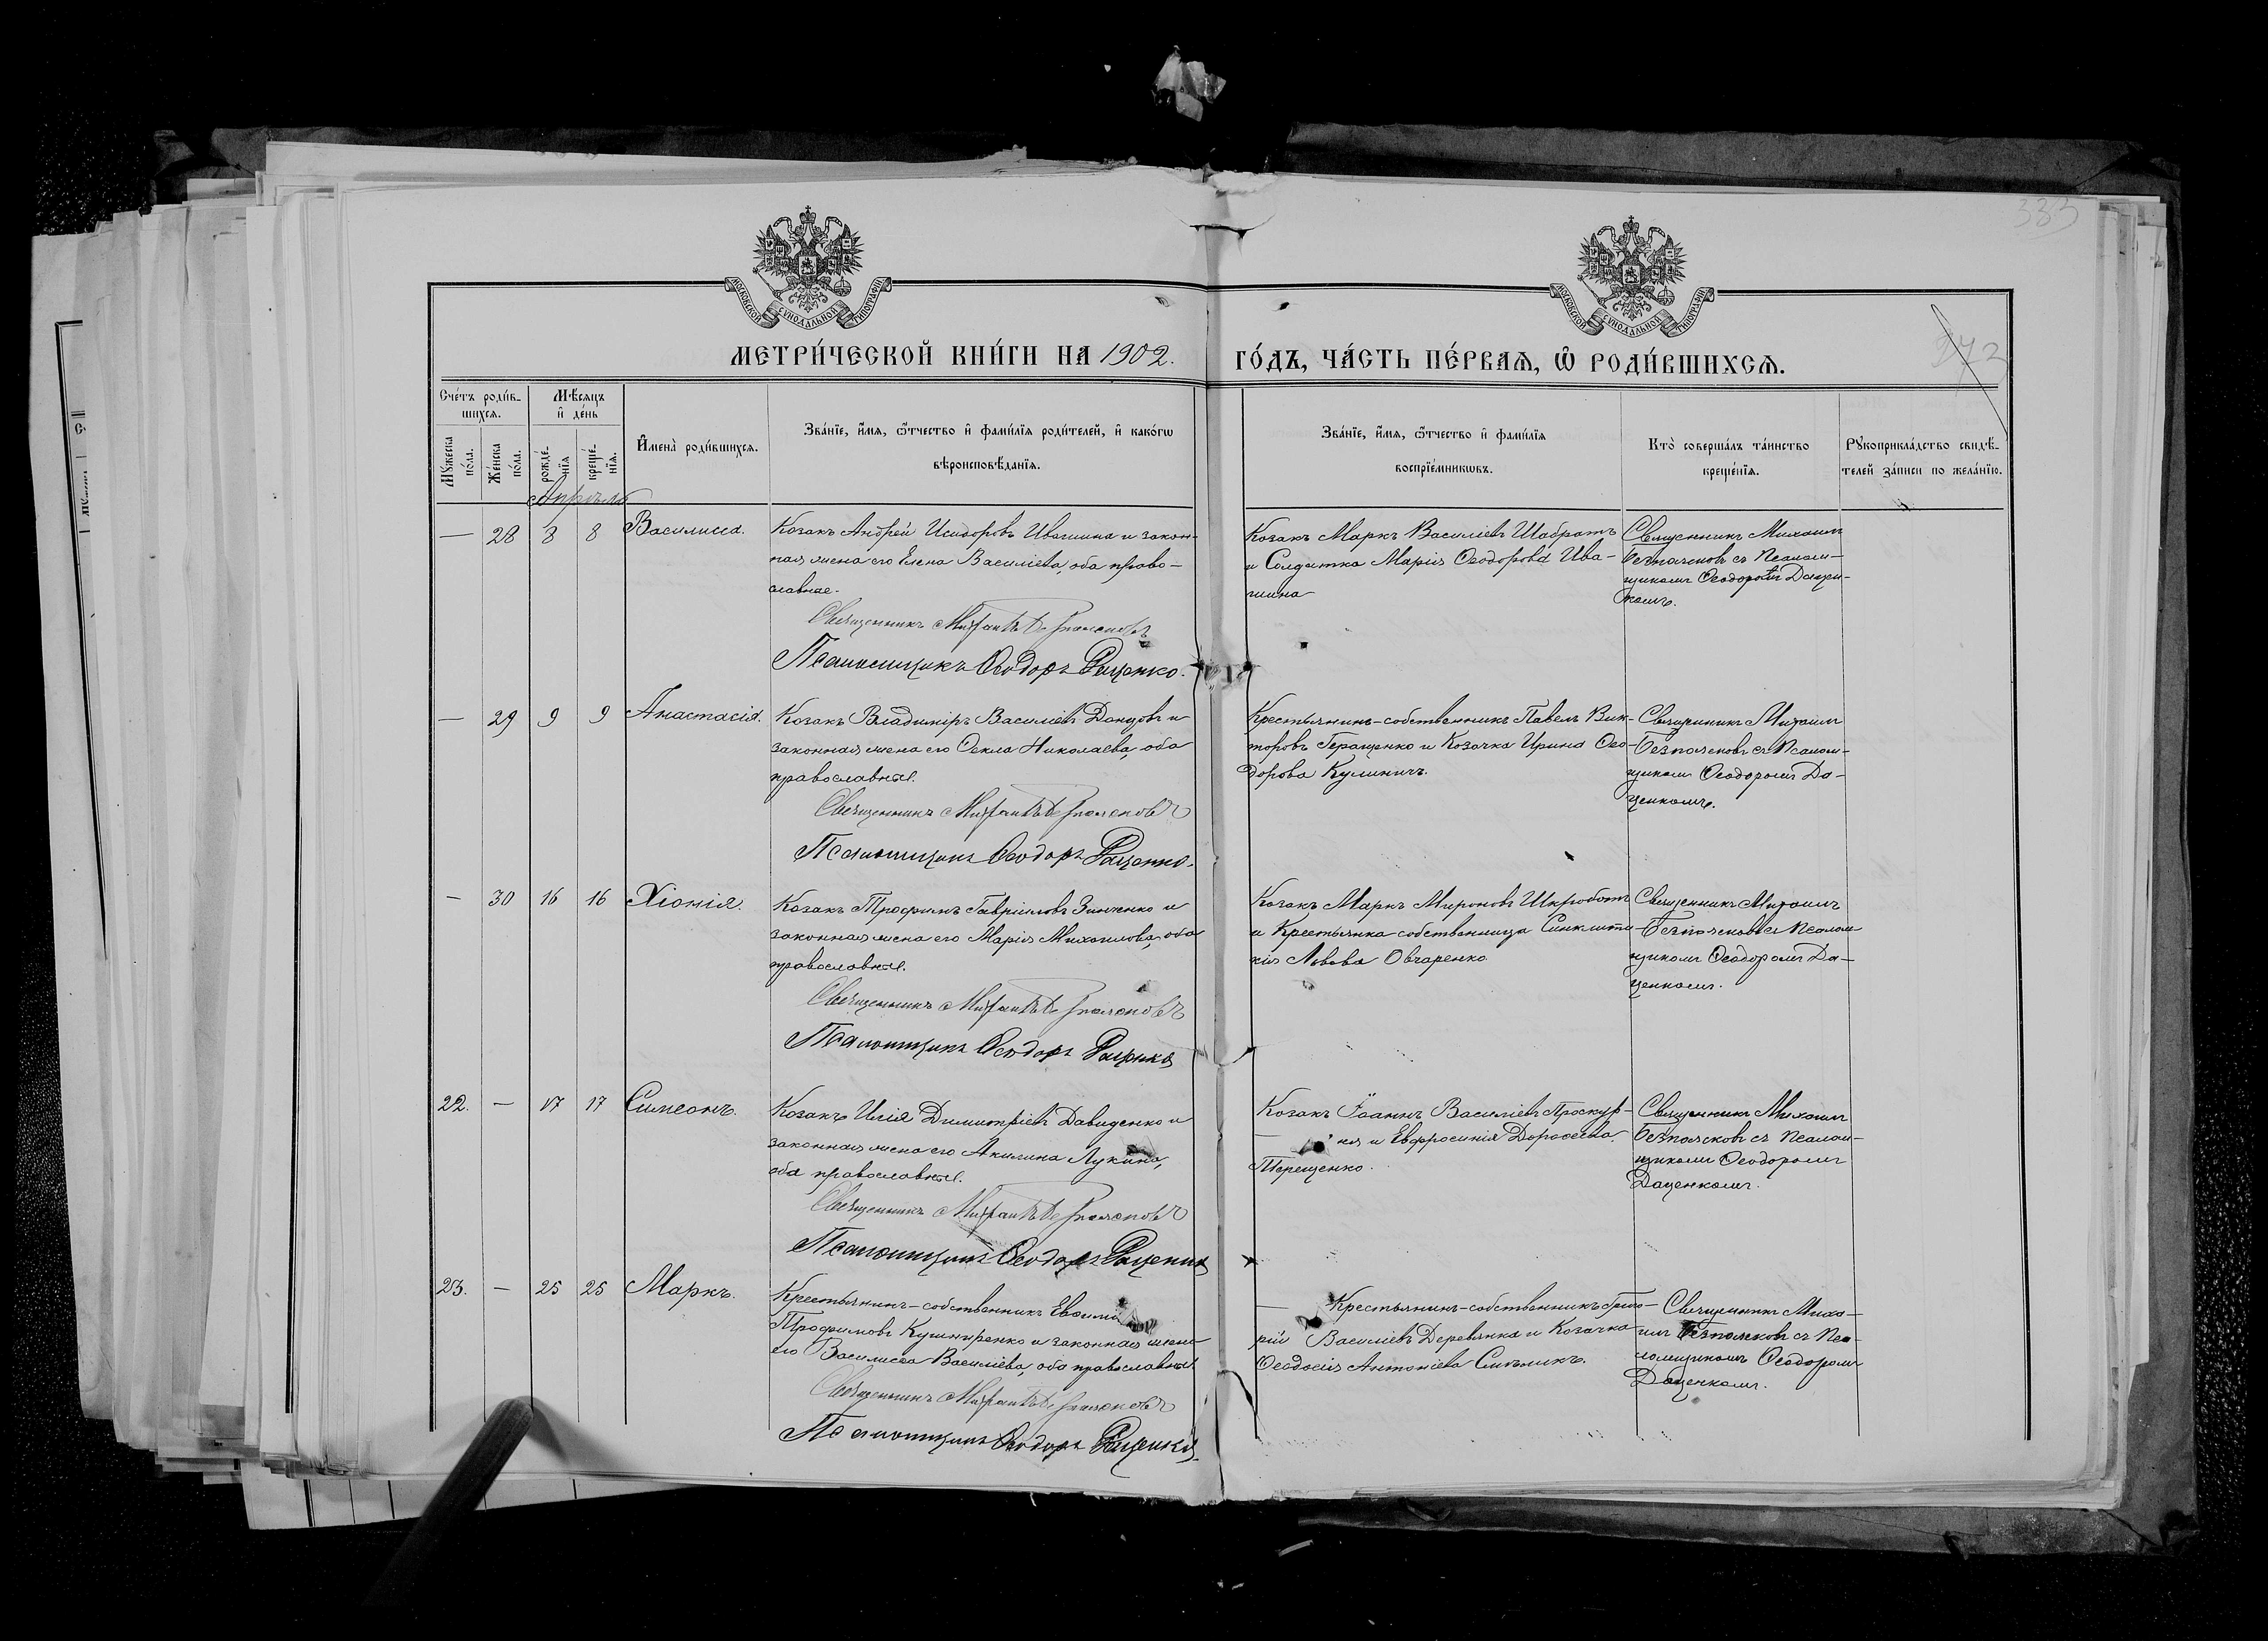 333
МОСКОВСКОЙ СѴНОДАЛЬНОЙ ТИПОГРАФІИ
МОСКОВСКОЙ СѴНОДАЛЬНОЙ ТИПОГРАФІИ
МЕТРИ́ЧЕСКОЙ КНИ́ГИ НА 1902. ГО́ДЪ, ЧА́СТЬ ПЕ́РВАѦ, Ѡ҆ РОДИ́ВШИХСѦ.
372
Сче́тъ роди́в-
шихсѧ.
Мѣ́сѧцъ
и҆ де́нь
Мꙋ́жеска
по́ла.
Же́нска
по́ла.
рожде́-
нїѧ
креще́-
нїѧ.
И҆мена̀ роди́вшихсѧ.
Зва́нїе, и҆́мѧ, ѻ҆́тчество и҆ фами́лїѧ роди́телей, и҆ како́гѡ
вѣроисповѣ́данїѧ.
Зва́нїе, и҆́мѧ, ѻ҆́тчество и҆ фами́лїѧ
воспрїе́мникѡвъ.
Кто̀ соверша́лъ та́инство
креще́нїѧ.
Рꙋкоприкла́дство свидѣ́-
телей за́писи по жела́нїю.
Апрѣль
— 28 8 8 Василисса.
Козакъ Андрей Исидоровъ Ивашина и закон-
ная жена его Елена Василіева, оба право-
славные.
Священникъ Михаилъ Безпалековъ
Псаломщикъ Ѳеодоръ Даценко.
Козакъ Маркъ Василіевъ Шабратъ
и Солдатка Марія Ѳеодорова Ива-
шина
Священникъ Михаилъ
съ Псалом-
щикомъ Ѳеодоромъ Дацен-
комъ.
— 29 9 9 Анастасія.
Козакъ Владиміръ Василіевъ Донцовъ и
законная жена его Ѳекла Николаева, оба
православные.
Священникъ Михаилъ
Псаломщикъ Ѳеодоръ Даценко.
Крестьянинъ-собственникъ Павелъ Вик-
торовъ Геращенко и Козачка Ирина Ѳео-
дорова Кулиничъ.
Священникъ Михаилъ
съ Псалом-
щикомъ Ѳеодоромъ Да-
ценкомъ.
— 30 16 16 Хіонія.
Козакъ Трофимъ Гавріиловъ Зинченко и
законная жена его Марія Михаилова, оба
православные.
Священникъ Михаилъ
Псаломщикъ Ѳеодоръ Даценко
Козакъ Маркъ Мироновъ Шкроботъ
и Крестьянка собственница Синклити-
кія Львова Овчаренко
Священникъ Михаилъ
съ Псалом-
щикомъ Ѳеодоромъ Да-
ценкомъ.
22. — 17 17 Симеонъ.
Козакъ Илія Димитріевъ Давиденко и
законная жена его Акилина Лукина,
оба православные.
Священникъ Михаилъ
Псаломщикъ Ѳеодоръ Даценко
Козакъ Іоаннъ Василіевъ Проскур-
ня и Евфросинія Дороѳеева
Терещенко.
Священникъ Михаилъ
съ Псалом-
щикомъ Ѳеодоромъ
Даценкомъ.
23. — 25 25 Маркъ.
Крестьянинъ-собственникъ Евѳимій
Трофимовъ Кушниренко и законная жена
его Василисса Василіева, оба православные.
Священникъ Михаилъ
Псаломщикъ Ѳеодоръ Даценко.
Крестьянинъ-собственникъ Григо-
рій Василіевъ Деревянка и Козачка
Ѳеодосія Антоніева Смѣликъ.
Священникъ Миха-
илъ съ Пса-
ломщикомъ Ѳеодоромъ
Даценкомъ.